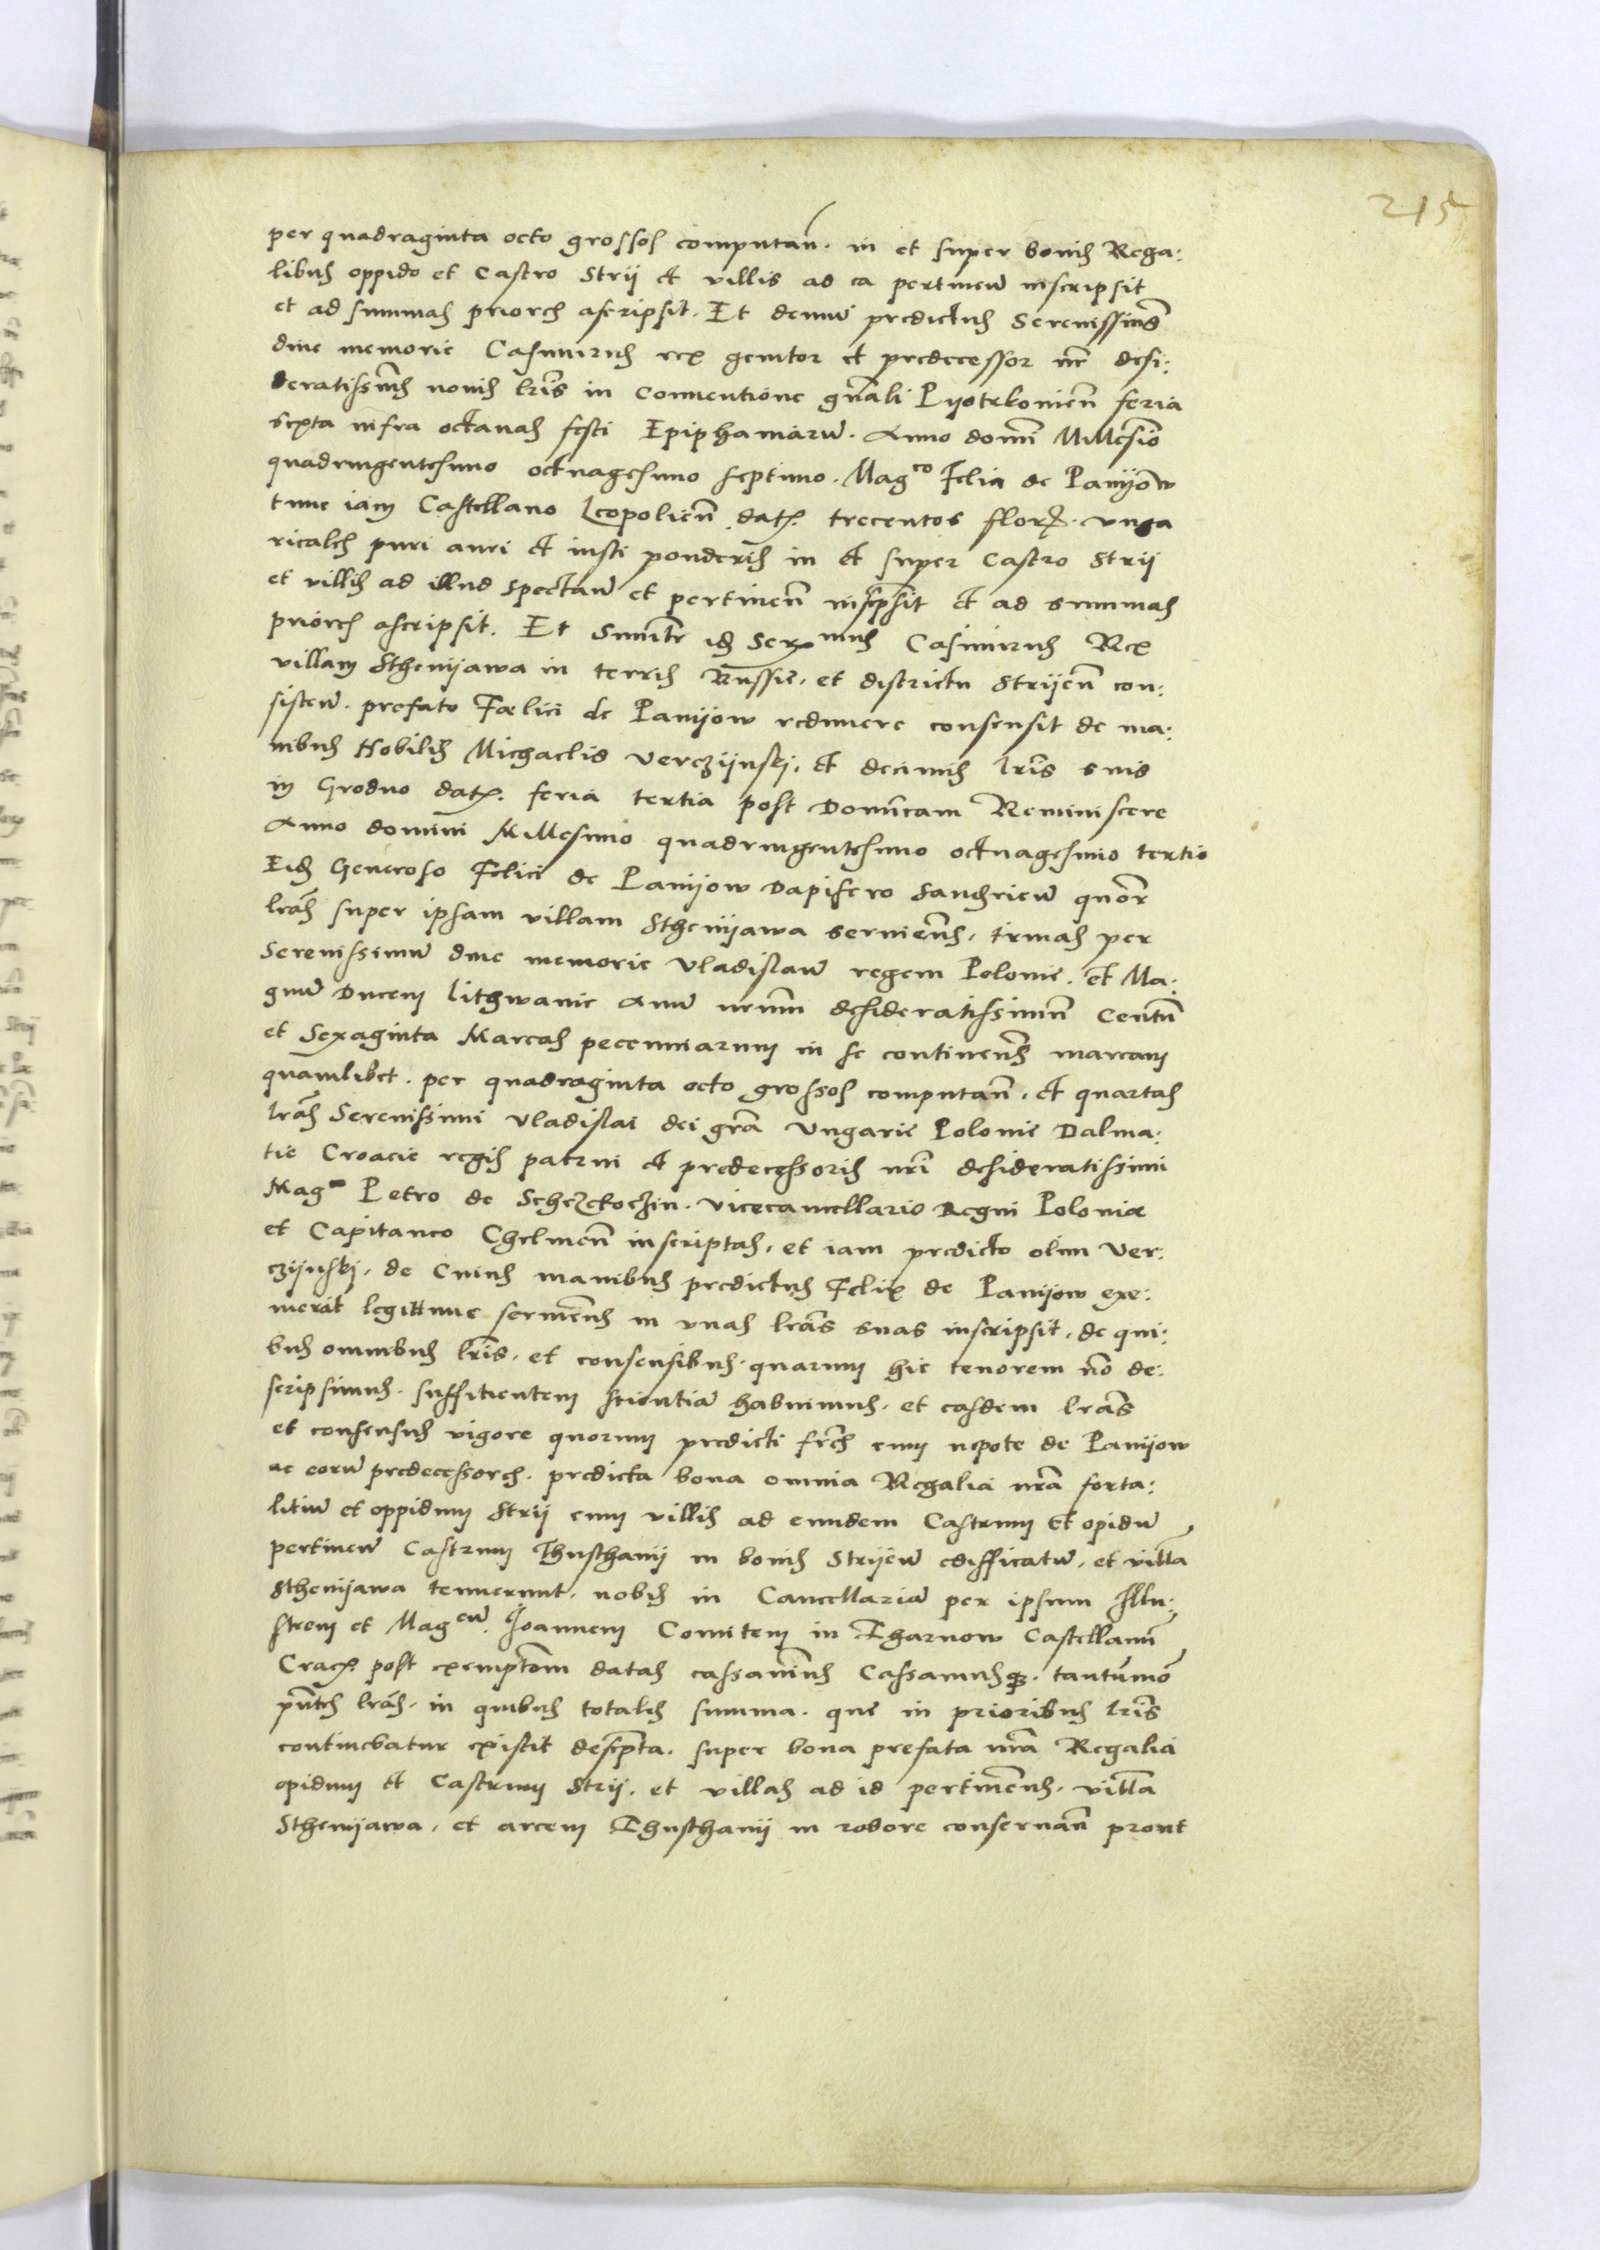 215
per quadraginta octo grossos computan̄. in et super bonis Rega:
libus oppido et Castro Strii et villis ad ea pertineñ inscripsit
et ad summas priores ascripsit. Et demū predictus Serenissimus
dive memorie Casimirus rex genitor et predecessor nr̄ desi:
deratissim̄s nonis lr̄is in Conventione gn̄ali Pyotrkovien̄ feria
sexta infra octavas festi Epiphaniarū. Anno domī Millesimo
quadringentesimo octuagesimo septimo. Magco Felici de Panijow
tunc iam Castellano Leopolien̄ dat. trecentos flor. Unga
ricales puri auri et iusti ponderis in et super Castro Strii
et villis ad illud spectan̄ et pertinen̄ inscp̄sit et ad summas
priores ascripsit. Et Similr̄ id Sermus Casimirus Rex
villam Sthenijawa in terris Russie. et districtu Strijen̄ con:
sisten̄. prefato Fœlici de Panijow redimere consensit de ma:
nibus Nobilis Michaelis Verczijnskj. et decimis lr̄is suis
in Grodno dat. feria tertia post Dominicam Reminiscere
Anno domini Millesimo quadringentesimo octuagesimo tertio
Eid Generoso Felici de Panijow Dapifero Sandxien̄ quor̄
lr̄as super ipsam villam Sthenijawa servien̄s. trinas per
Serenissimū dive memorie Vladislaū regem Polonie. et Ma:
gnū Ducem Lithwanie Avū nr̄um desideratissimū Centū
et Sexaginta Marcas pecuniarum in se continen̄s marcam
quamlibet. per quadraginta octo grossos computan̄. et quartas
lr̄as Serenissimi Vladislai dei grā Ungarie Polonie Dalma:
tie Croacie regis patrui et predecessoris nr̄i desideratissimi
Magco Petro de Schezekoczin. Vicecancellario Regni Poloniæ
et Capitaneo Chelmen̄ inscriptas. et iam predicto olim Ver:
czijnskj. de Cuius manibus predictus Felix de Panijow exe:
merat legittime servien̄s in unas lr̄as suas inscripsit. de qui:
bus omnibus lr̄is. et consensibus. quarum hic tenorem nō de:
scripsimus. suffitientem scientiā habuimus. et easdem lr̄as
et consensus vigore quorum predicti fr̄es cum nepote de Panijow
ac eorū predecessores. predicta bona omnia Regalia nr̄a forta:
litiū et oppidum Strii cum villis ad eundem Castrum et opidū
pertineñ Castrum Thusthanij in bonis Strijen̄ edifficatū. et villā
Sthenijawa tenuerunt. nobis in Cancellariā per ipsum Illu:
strem et Magcū. Joannem Comitem in Tharnow Castellanū
Crac. post exemptōem datas cassavimus Cassamusqȝ. tantūmō
pn̄tes lr̄as. in quibus totalis summa. que in prioribus lr̄is
continebatur existit descp̄ta. super bona prefata nr̄a Regalia
opidum et Castrum Strij. et villas ad id pertinen̄s. villā
Sthenijawa. et arcem Thusthanij in robore conservan̄ prout